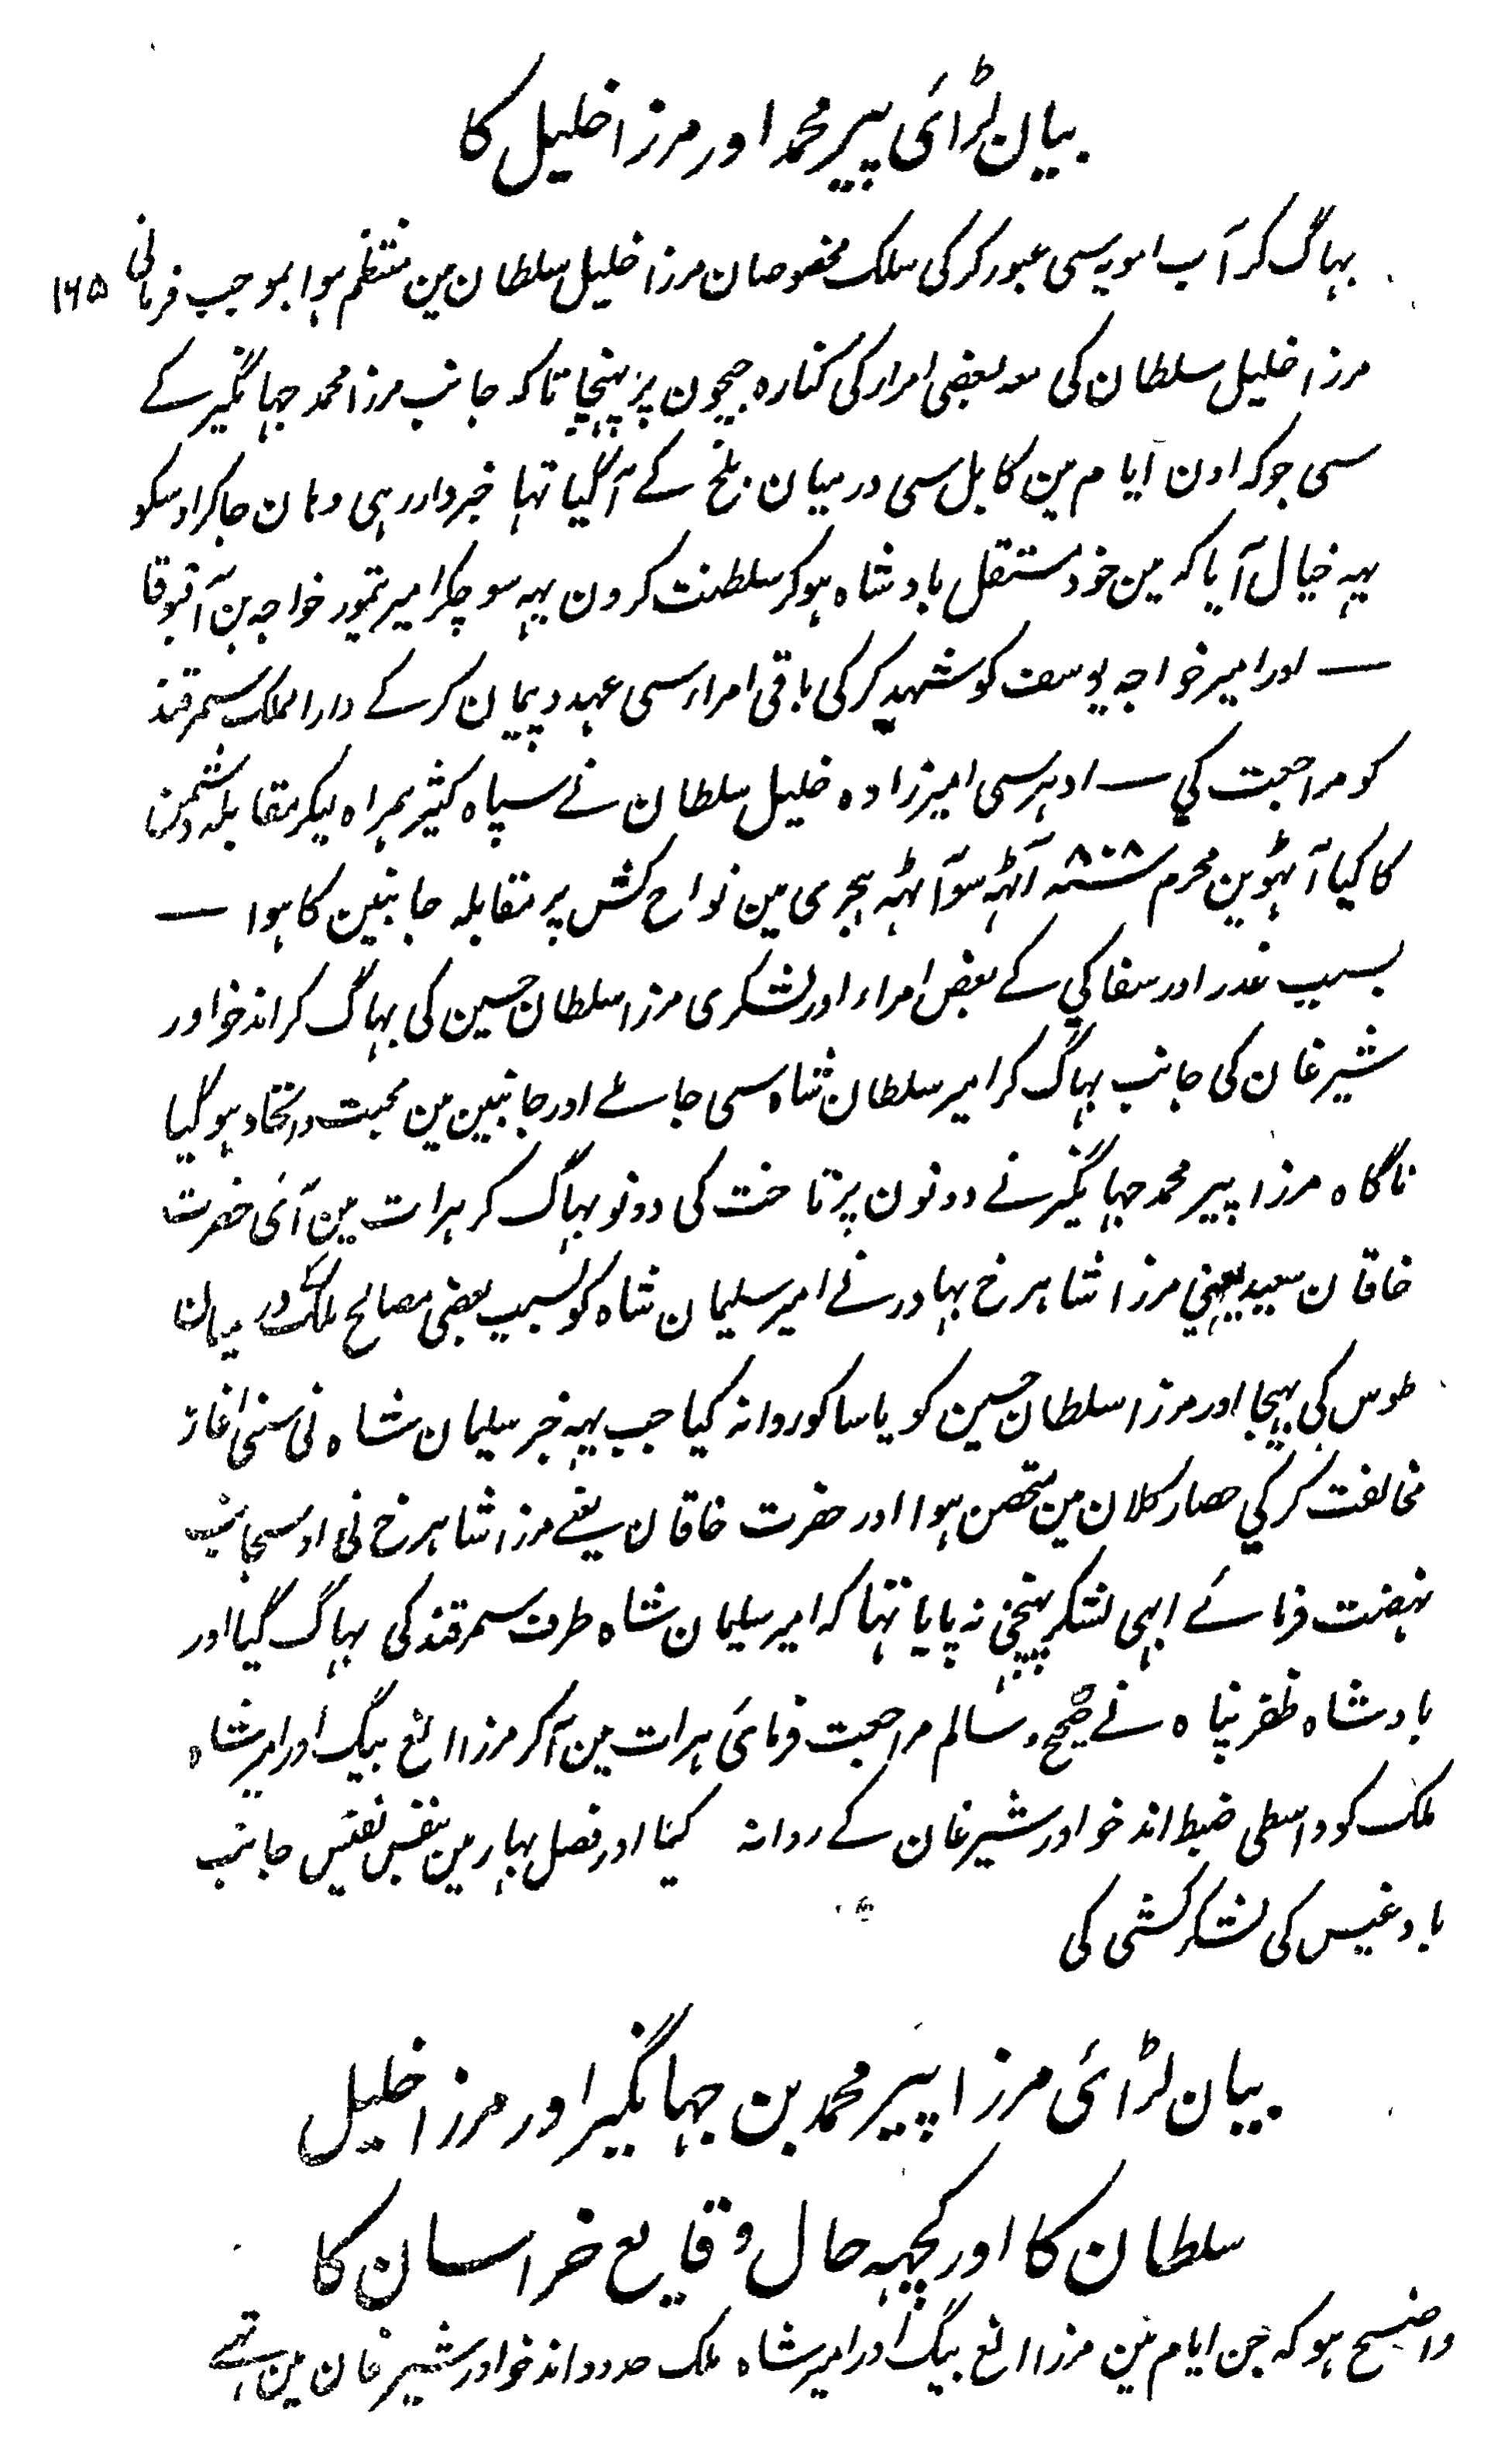 بیان لڑائی پیر محمد اور مرزا خلیل کا
بہاگ کر آب امویہ سی عبور کر کی سلک مخصوصان مرزا خلیل سلطان مین منتظم ہوا بموجب فرمانی ۱۶۵
مرزا خلیل سلطان کی معہ بعضی امراء کی کنارہ جیحون پر پہنچا تاکہ جانب مرزا محمد جہانگیر کے
سی جو کہ اون ایام مین کابل سی درمیان بلخ کے آگیا تہا خبردار رہی وہان جاکر اوسکو
یہہ خیال آیا کہ مین خود مستقل بادشاہ ہوکر سلطنت کرون یہہ سوچکر امیر تیمور خواجہ بن آقبوقا
— اور امیر خواجہ یوسف کو شہید کر کی باقی امراء سی عہد و پیمان کر کے دار الملک سمرقند
کو مراجعت کی — ادہر سی امیرزادہ خلیل سلطان نے سپاہ کثیر ہمراہ لیکر مقابلہ دشمن
کا کیا آٹہوین محرم سنہ ۸۰۸ آٹہہ سو آٹہہ ہجری مین نواح کش پر مقابلہ جانبین کا ہوا —
بسبب غدر اور سفاکی کے بعض امراء اور لشکری مرزا سلطان حسین کی بہاگ کر اندخوا ور
شیرغان کی جانب بہاگ کر امیر سلطان شاہ سی جا ملے اور جانبین مین محبت و اتحاد ہو گیا
ناگاہ مرزا پیر محمد جہانگیر نے دونون پر تاخت کی دونو بہاگ کر ہرات مین آئی حضرت
خاقان سعید یعنی مرزا شاہرخ بہادر نے امیر سلیمان شاہ کو بسبب بعضی مصالح ملک در میان
طوس کی بہیجا اور مرزا سلطان حسین کو یاسا کو روانہ کیا جب یہہ خبر سلیمان شاہ نی سنی آغاز
مخالفت کر کی حصار کلان مین متحصن ہوا اور حضرت خاقان یعنے مرزا شاہرخ نی اوسجانب
نہضت فرمائے ابہی لشکر پہنچنی نہ پایا تہا کہ امیر سلیمان شاہ طرف سمرقند کی بہاگ گیا اور
بادشاہ ظفر پناہ نے صحیح و سالم مراجعت فرمائی ہرات مین آکر مرزا الغ بیگ اور امیر شاہ
ملک کو واسطی ضبط اندخوا ور شیرغان کے روانہ کیا اور فصل بہار مین بنفس نفیس جانب
بادغیس کی لشکر کشی کی
بیان لڑائی مرزا پیر محمد بن جہانگیر اور مرزا خلیل
سلطان کا اور کچہہ حال وقایع خراسان کا
واضح ہو کہ جن ایام مین مرزا الغ بیگ اور امیر شاہ ملک حدود اندخوا ور شیرغان مین تہے